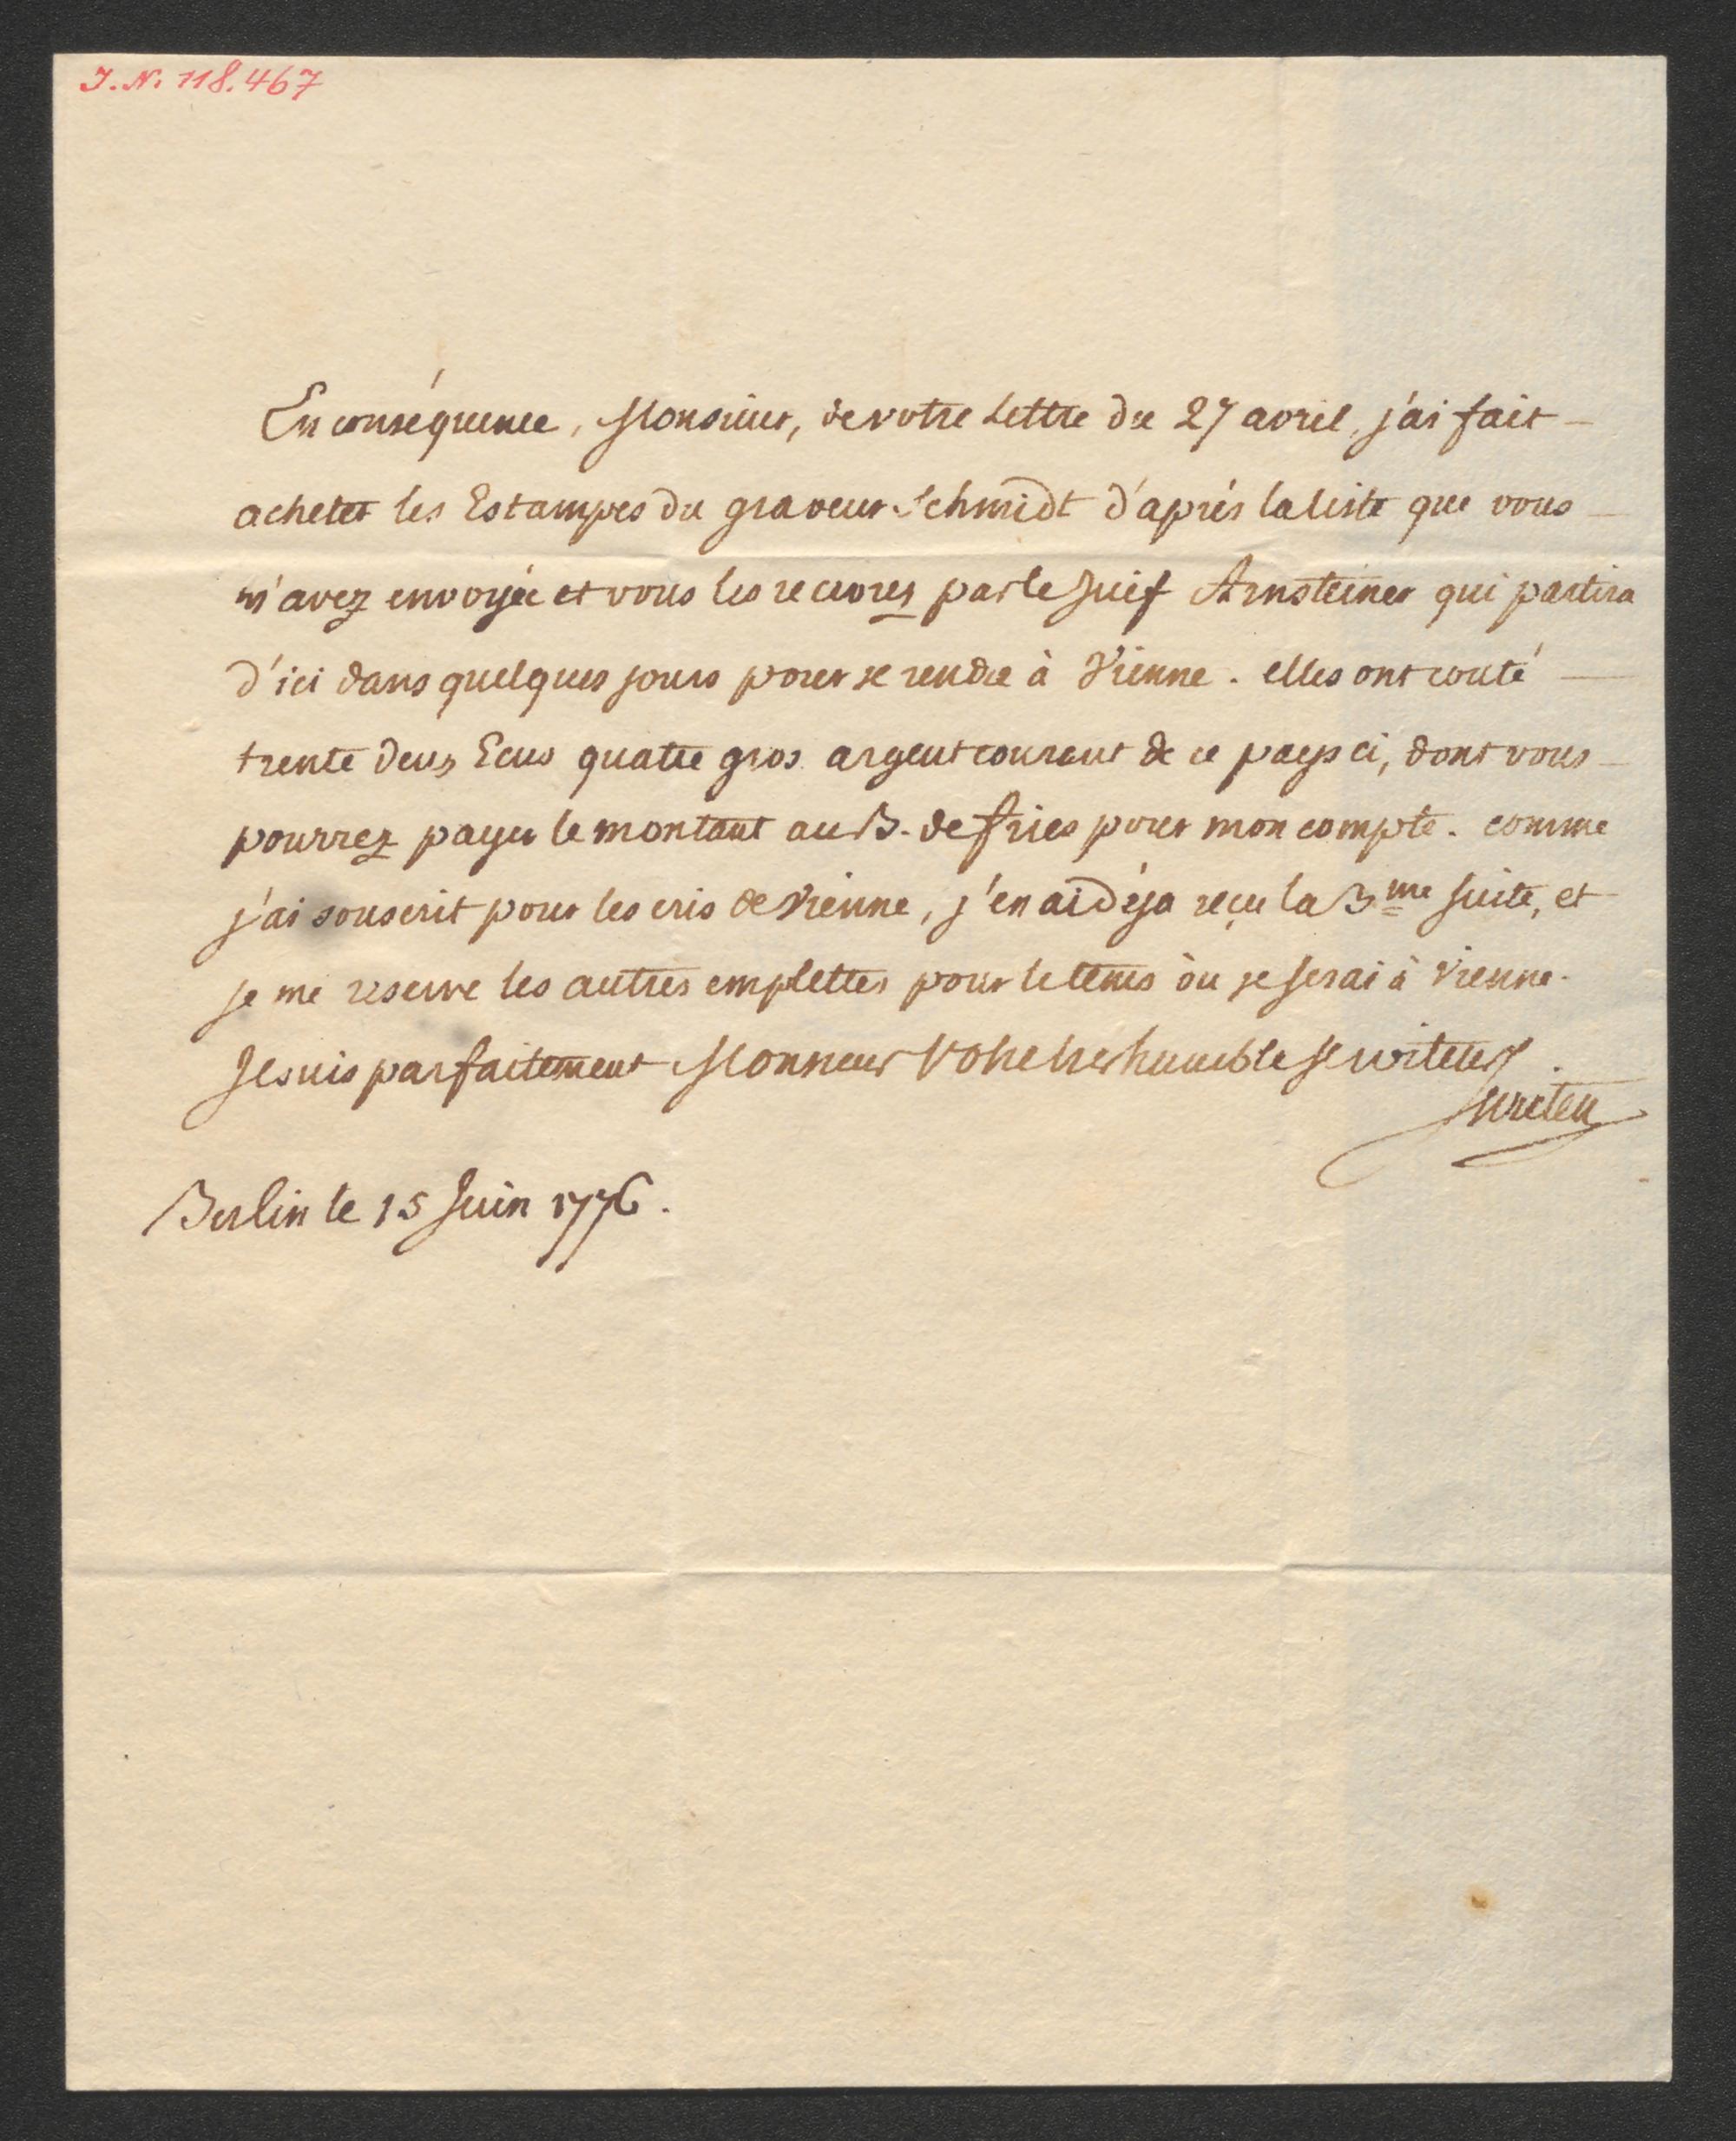 J. N. 118.467
En conséquence, Monsieur, de votre Lettre du 27 avril, j'ai fait –
acheter les Estampes du graveur Schmidt d'aprés la liste que vous –
m'avez envoyée et vous les recevres par le Juif Arnsteiner qui partira
d'ici dans quelques jours pour se rendre à Vienne. elles ont couté –
trente deux Ecus quatre gros argent courant de ce pays ci, dont vous –
pourrez payer le montant au B. de fries pour mon compte. comme
j'ai souscrit pour les cris de Vienne, j'en ai déja reçu la 3me suite, et
je me reserve les autres emplettes pour le tems òu je serai à Vienne.
Je suis parfaitement Monsieur Votre tres humble serviteur
Swieten
Berlin le 15 Juin 1776.